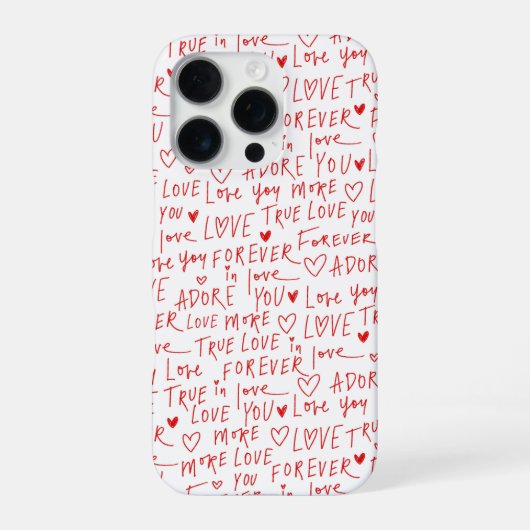 TRUE in love
Love you
LOVE TRUE
FOREVER
in love
ADORE YOU
LOVE Love you MORE
YOU LOVE TRUE LOVE YOU
love
Love you FOREVER FOREVER
in love ADORE
ADORE YOU Love you
LOVE MORE LOVE TRUE
TRUE LOVE in love
Love FOREVER
TRUE in love ADORE
LOVE YOU Love you
MORE LOVE TRUE
MORE LOVE FOREVER
YOU in love